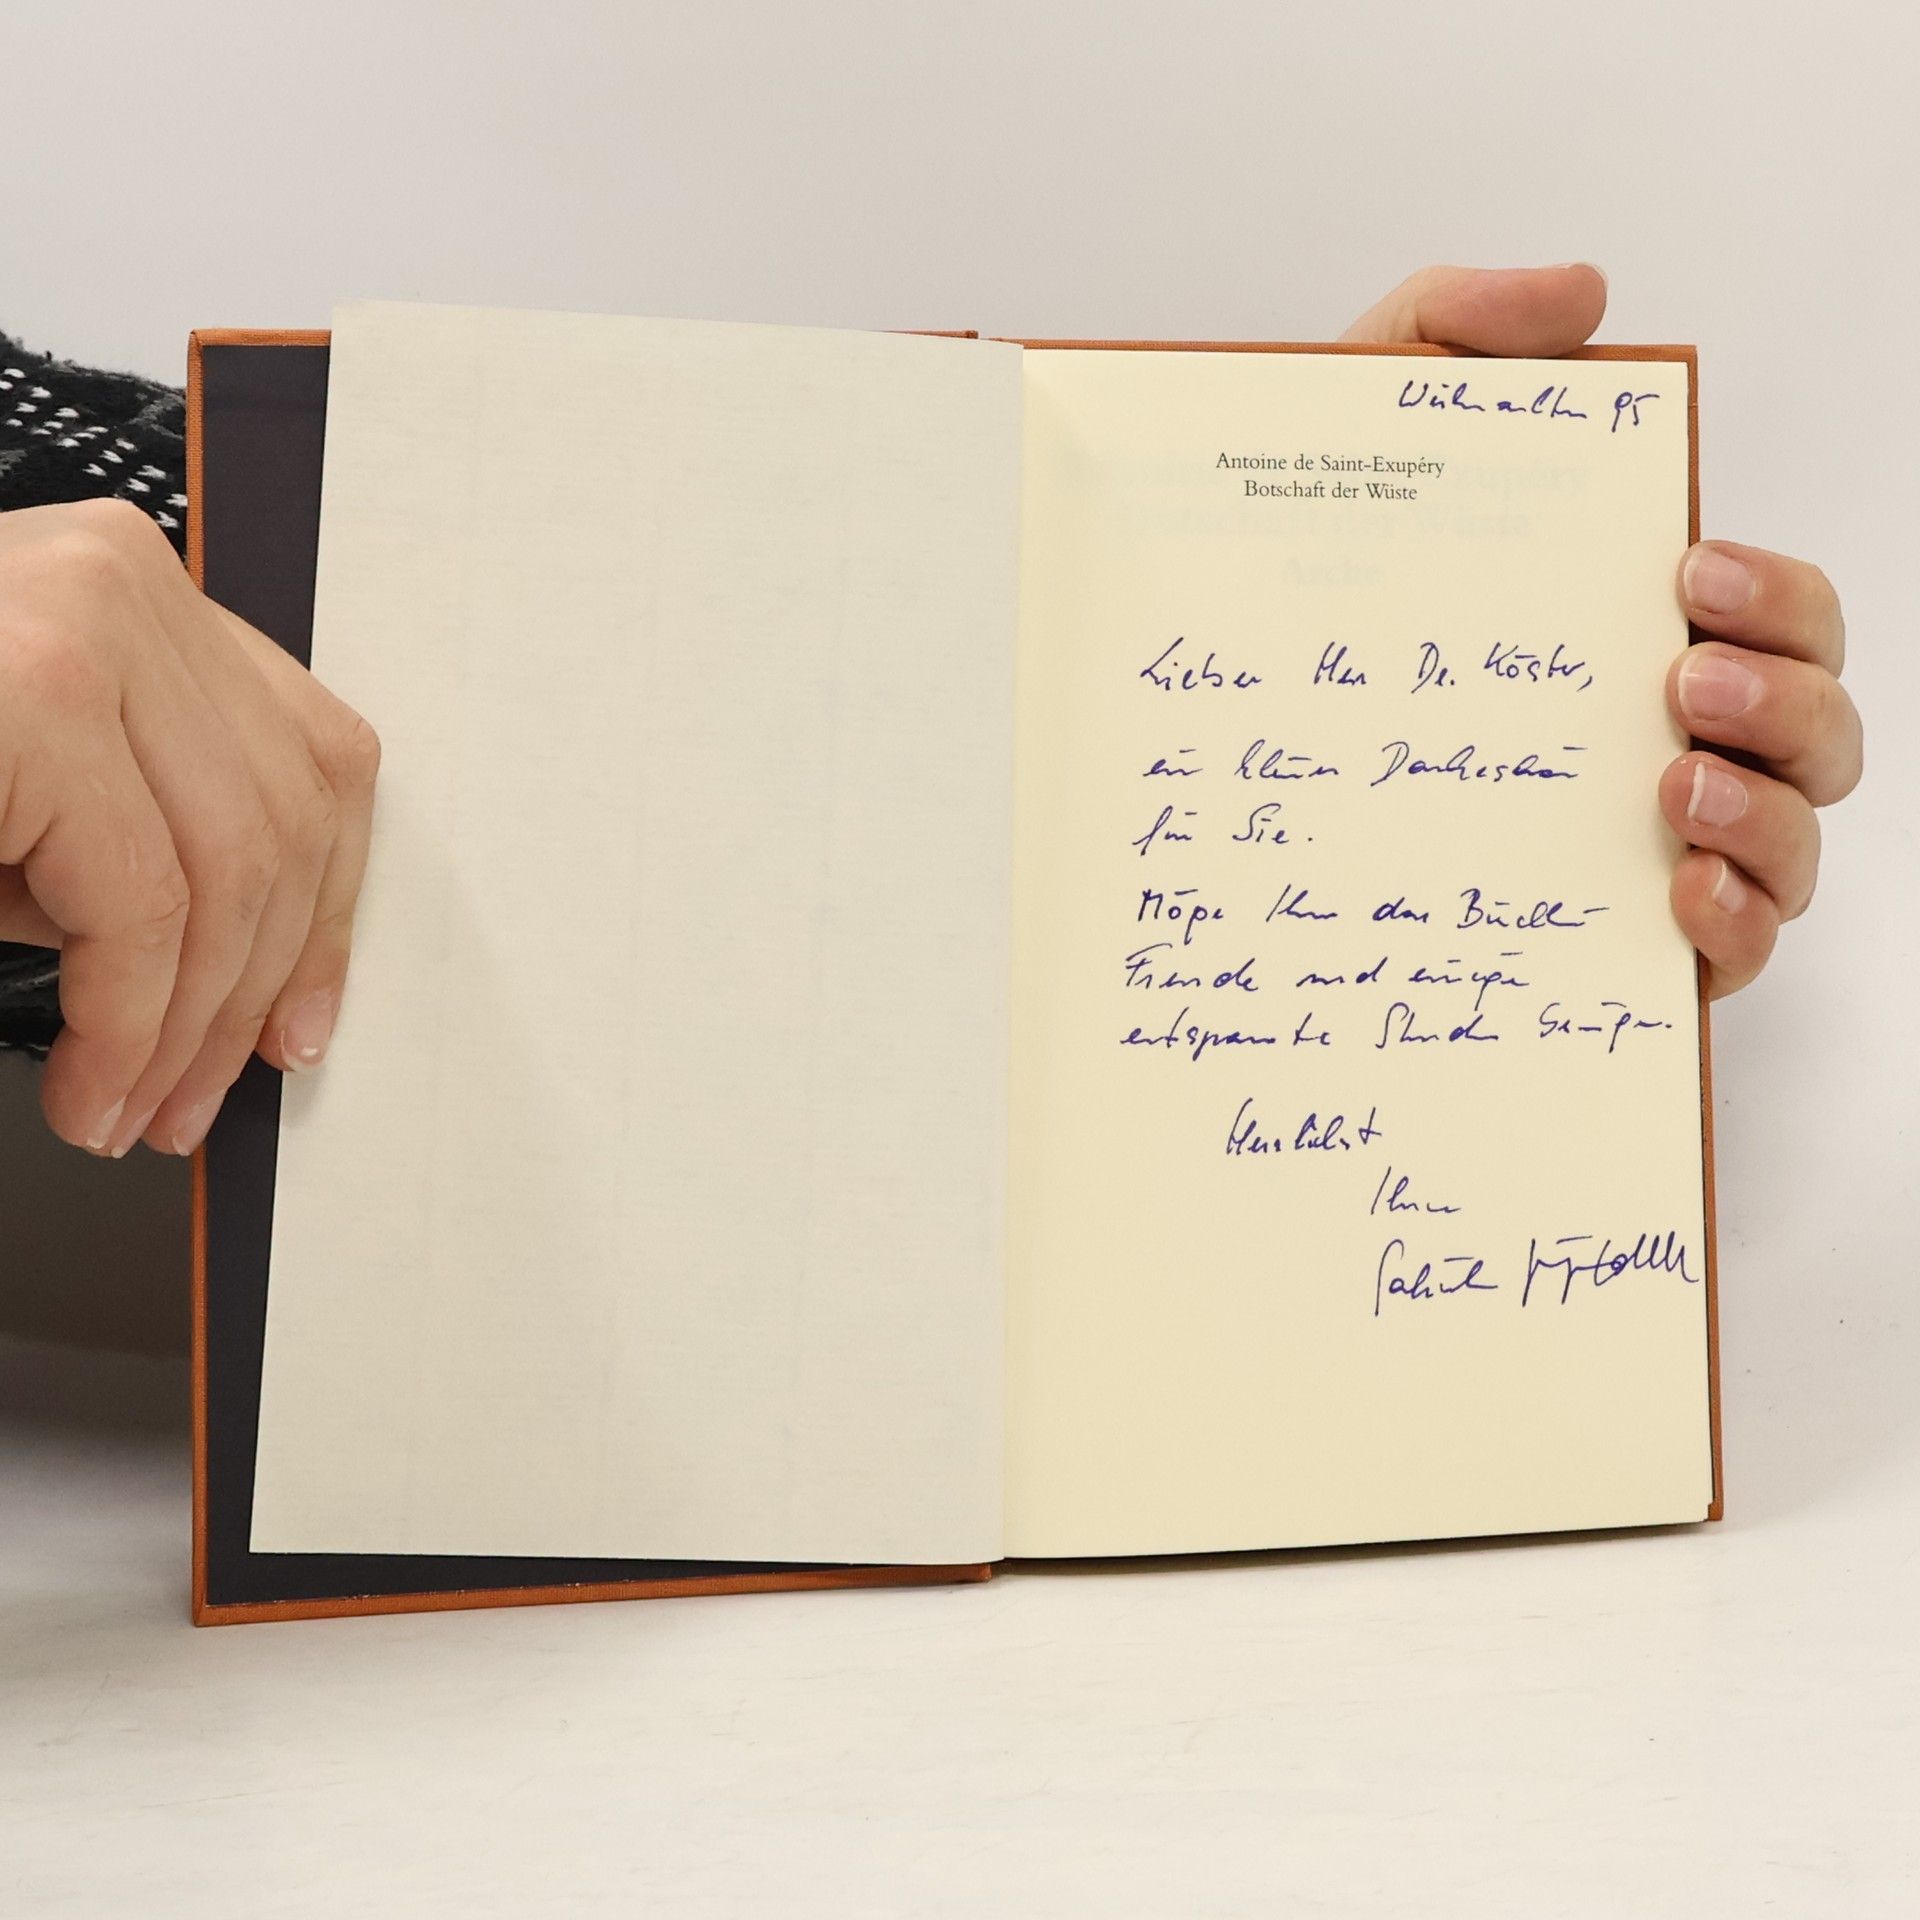 Weihnachten 95
Antoine de Saint-Exupéry
Botschaft der Wüste
Lieber Herr Dr. Köster,
ein kleines Dankeschön
für Sie.
Möge Ihnen das Büchlein
Freude und einige
entspannte Stunden bringen.
Herzlichst
Ihre